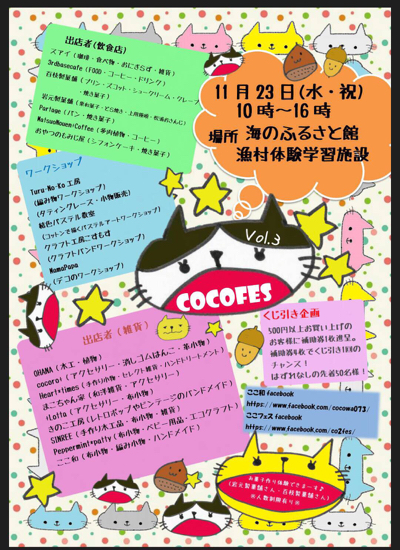 出店者(飲食店)
スアイ(珈琲・食べ物・おにぎらず・雑貨)
3rdbasecafe(FOOD・コーヒー・ドリンク)
百枝製菓舗(プリン・スコット・シュークリーム・クレープ
・焼き菓子)
岩元製菓舗
Portage(パン・焼き菓子)
NatsuoNouen+Coffee(季肉植物・コーヒー)
おやつのもみじ屋(シフォンケーキ・焼き菓子)
11月23日(水・祝)
10時~16時
場所 海のふるさと館
漁村体験学習施設
ワークショップ
Turu-No-Ko工房
(編み物ワークショップ)
(タティングレース・小物販売)
結色パステル教室
(コットンで描くパステルアートワークショップ)
クラフト工房こすもす
(クラフトバンドワークショップ)
MomoPapa
(デコのワークショップ)
Vol.3
COCOFES
出店者(雑貨)
OHANA(木工・植物)
cocoro(アクセサリー・消しゴムはんこ・革小物)
Heart+times(手作り小物・セレクト雑貨・ハンドトリートメント)
まこちゃん家(和洋雑貨・アクセサリー)
+Lotta(アクセサリー・布小物)
きのこ工房(レトロポップやビンテージのハンドメイド)
SUNREE(手作り木工品・布小物・雑貨)
Peppermint+patty(布小物・ベビー用品・エコクラフト)
ここ和(布小物・編み小物・ハンドメイド)
くじ引き企画
500円以上お買い上げの
お客様に補助券1枚進呈。
補助券4枚でくじ引き1回の
チャンス!
はずれなしの先着50名様!
ここ和facebook
https://www.facebook.com/cocowa073/
ここフェスfacebook
https://www.facebook.com/co2fes/
お菓子作り体験できる~す♪
(岩元製菓舗さん・百枝製菓舗さん)
※人数制限有り※